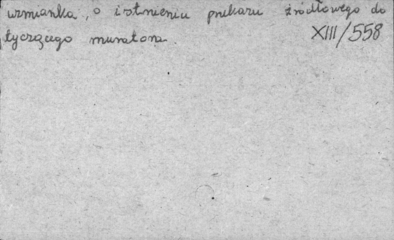 wzmianka, o istnieniu przekazu źródłowego do
tyczącego muratora.
XIII/558